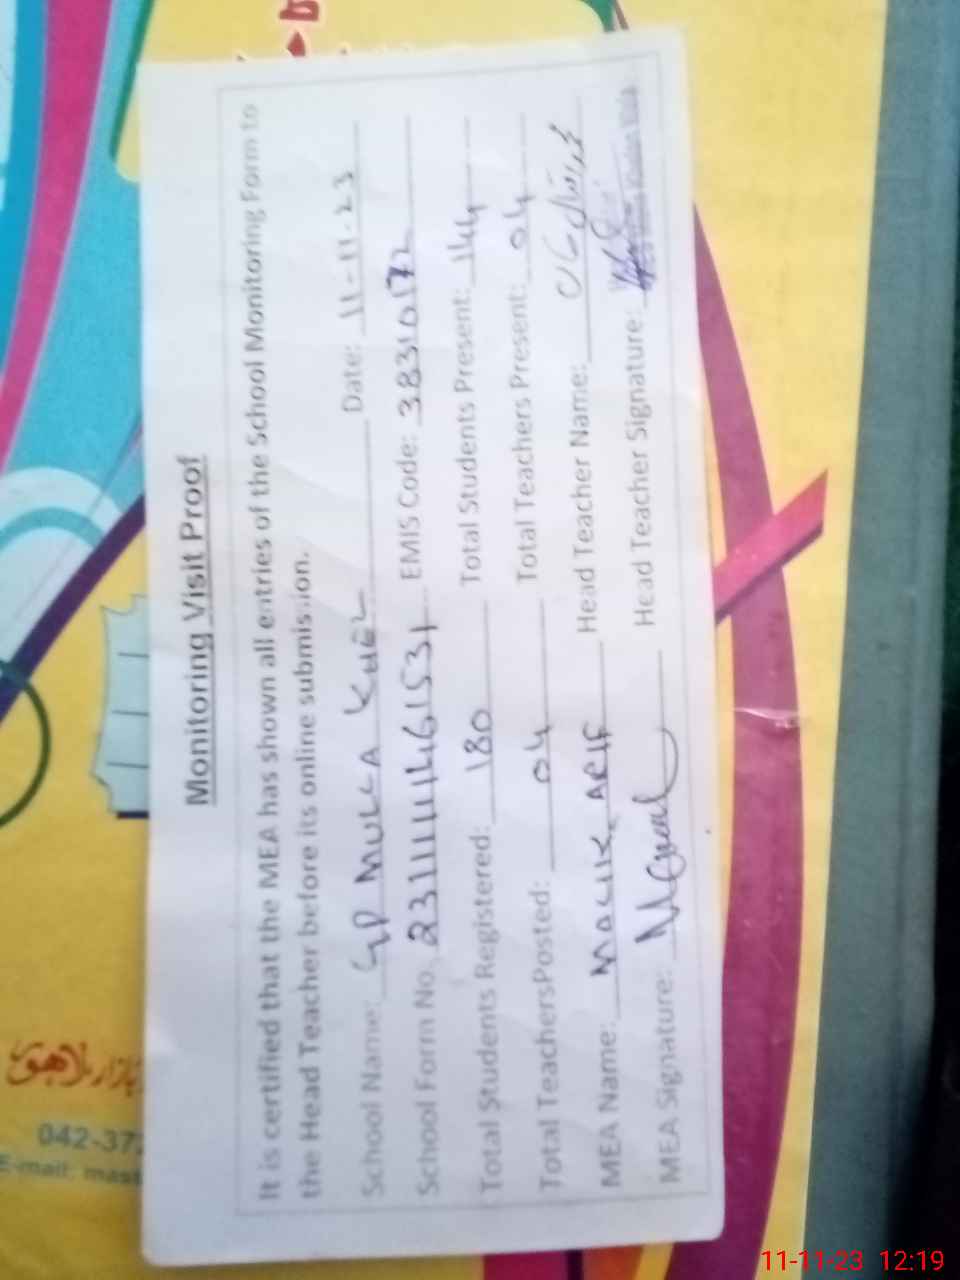 Monitoring Visit Proof
It is certified that the MEA has shown all entries of the School Monitoring Form to
the Head Teacher before its online submission.
School Name: GP MULLA KHEL Date: 11-11-23
School Form No. EMIS Code: 38310172
Total Students Registered: 180 Total Students Present: 144
Total TeachersPosted: 04 Total Teachers Present: 04
MEA Name: MALIK ARIF Head Teacher Name:
MEA Signature: Head Teacher Signature:
بازار لاہور
042-372
E-mail: mast
11-11-23 12:19